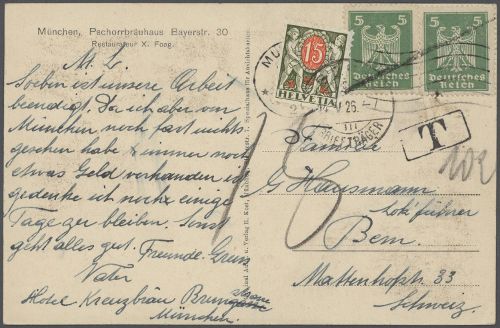 München, Pschorrbräuhaus Bayerstr. 30
Restaurateur X. Foog.
M. L.
Soeben ist unsere Arbeit
beendigt. Da ich aber von
München noch fast nichts
gesehen habe & immer noch
etwas Geld vorhanden ist
gedenke ich noch einige
Tage zu bleiben. Sonst
geht alles gut. Freundl. Gruss
Vater
Hotel Kreuzbräu Brunnstrasse
München.
15
HELVETIA
5 5
Deutsches
Reich
5 5
Deutsches
Reich
26
BRIEFTRÄGER
T
15
Familie
G Hausmann
Lok'führer
Bern.
Mattenhofstr. 33
Schweiz.